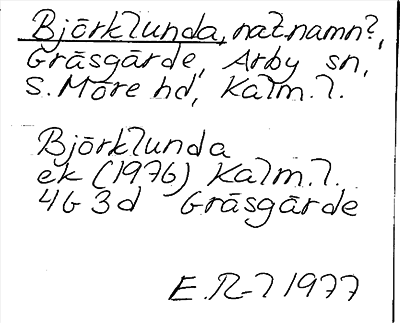 Björklunda, nat.namn?,
Gräsgärde, Arby sn,
S. Möre hd, Kalm. l.
Björklunda
ek (1976) Kalm. l.
4G 3d Gräsgärde
1977